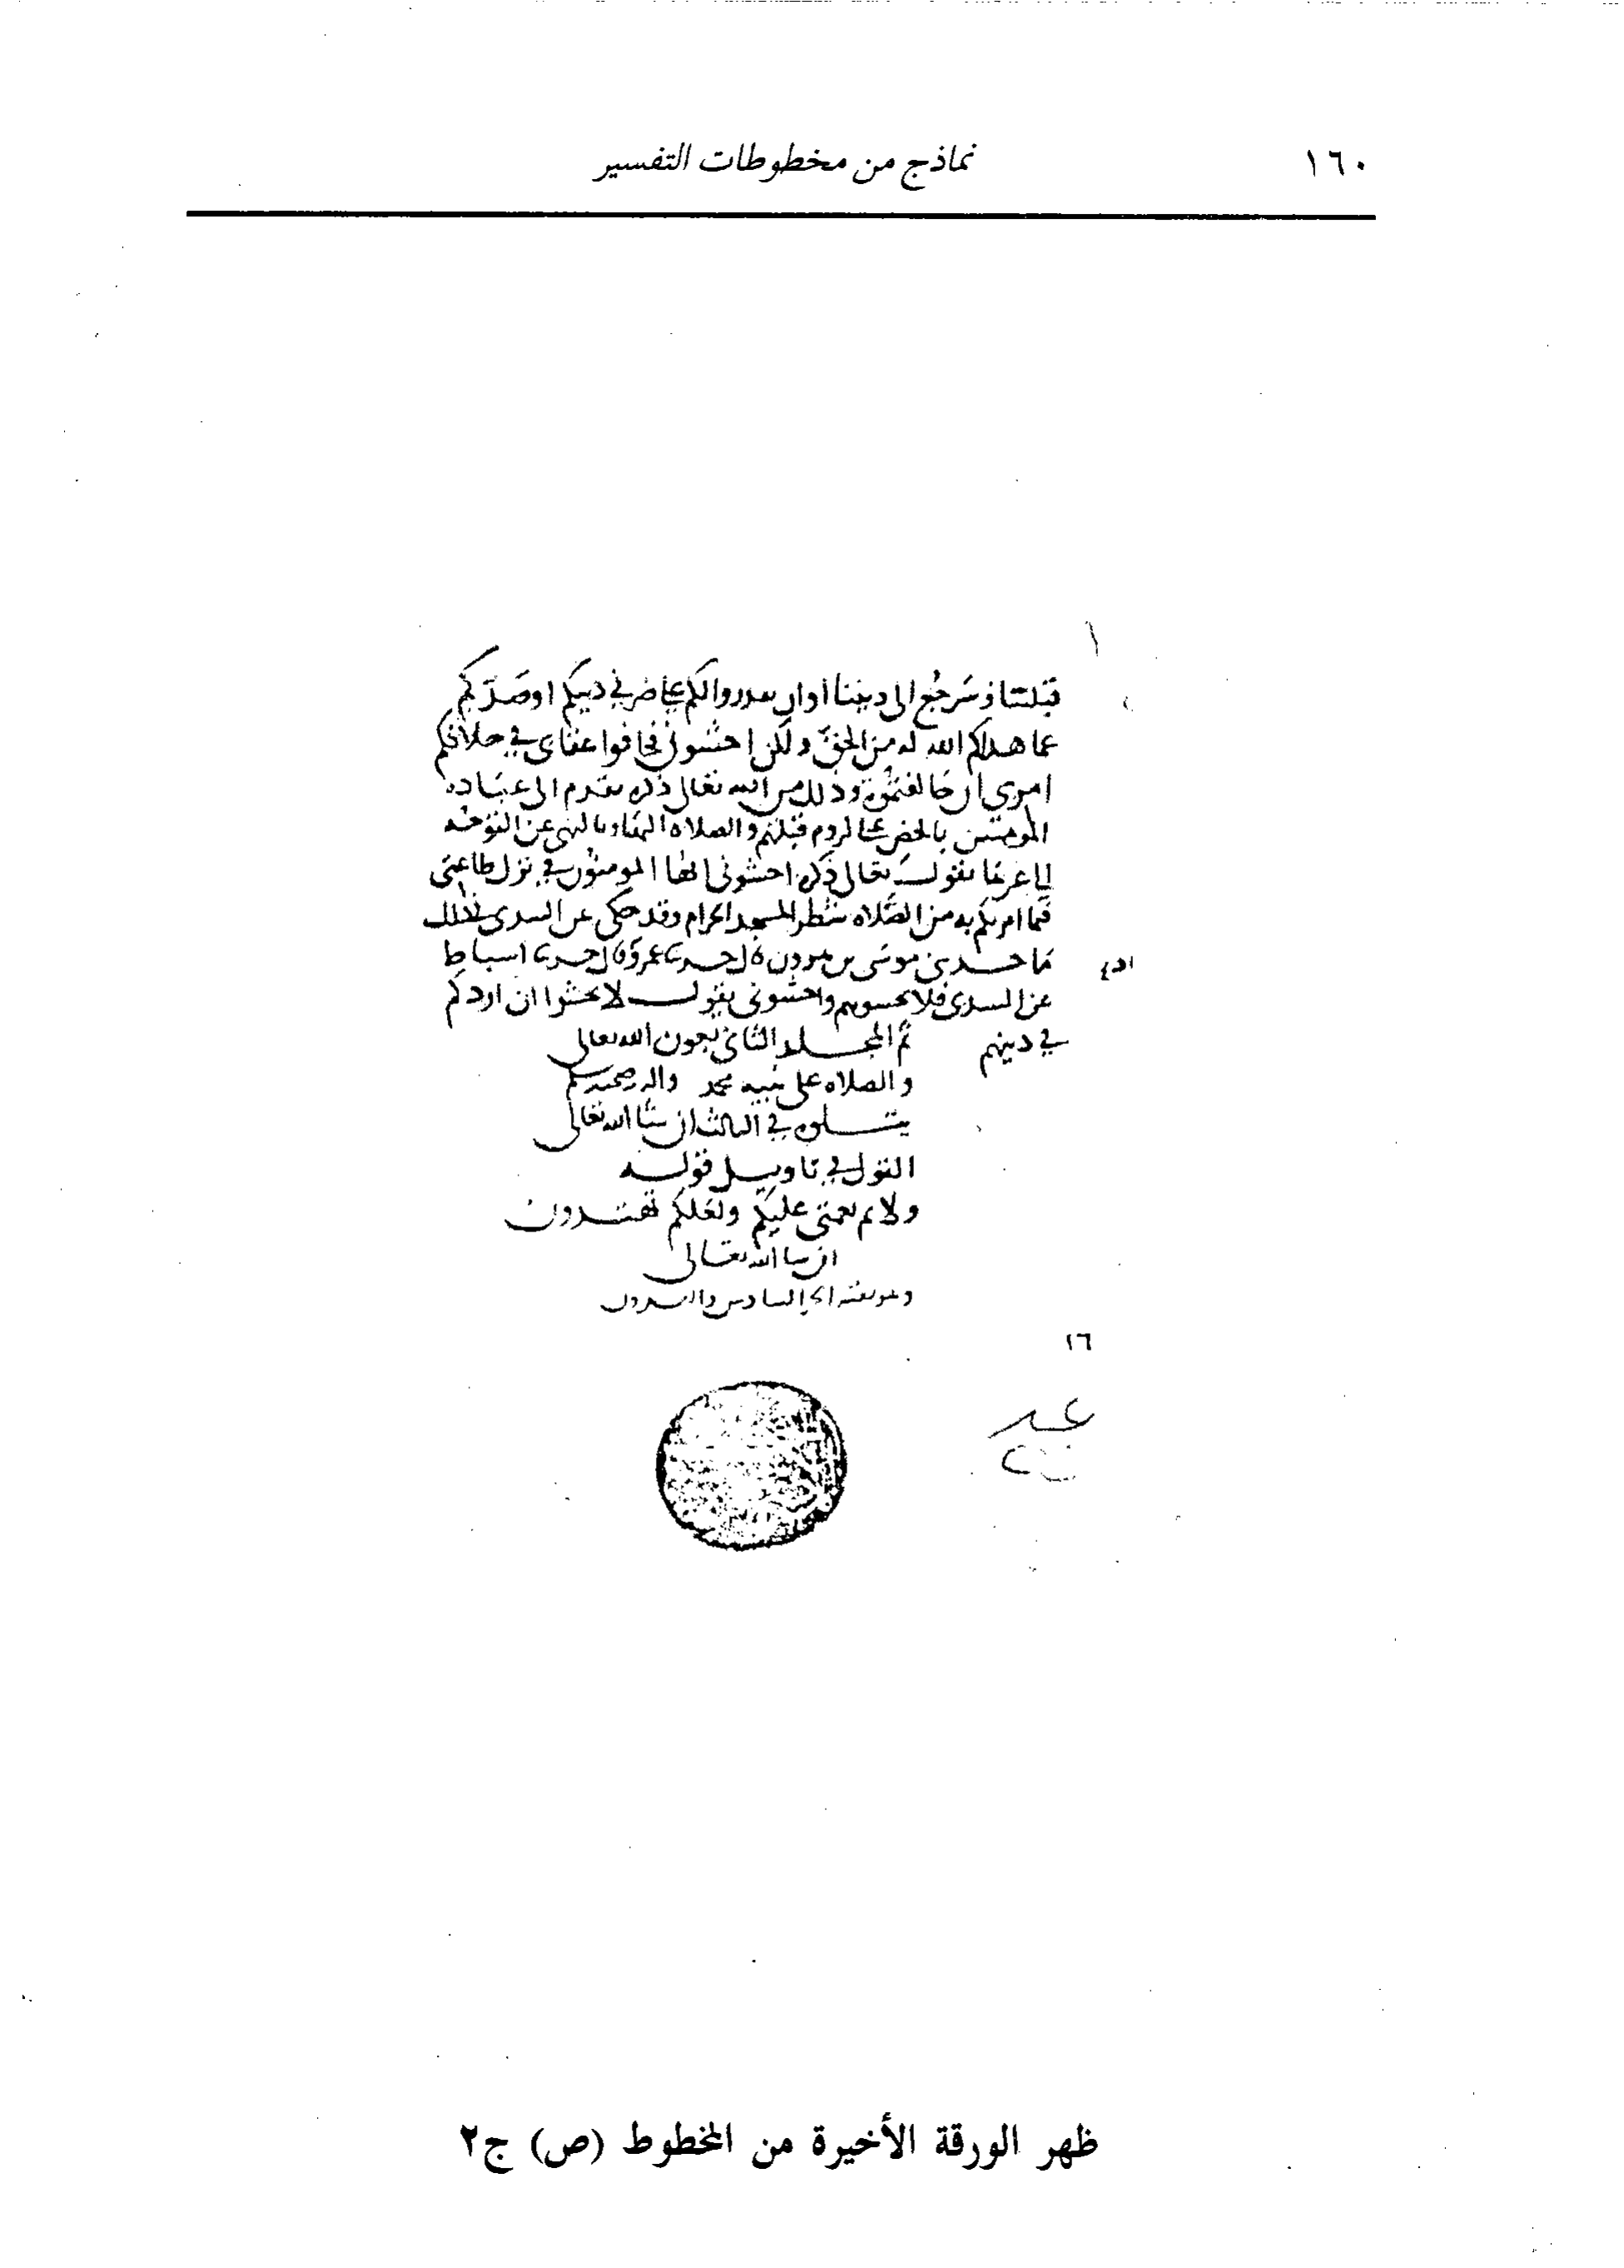 ١٦٠
نماذج من مخطوطات التفسير
قبلتنا وسَيرجُع الى ديننا اوان يقدروا لكم على ضر في دينكم اوصَدّكم
عما هداكم الله له من الحق ولكن اخشوني فخافوا عقابي في خلافكم
امري ان خالفتموه وذلك من الله تعالى ذكره تقدم الى عباده
المومنين بالحض على لزوم قبلتهم والصلاه اليها وبالنهي عن التوجه
الى غيرها يقول تعالى ذكره اخشوني ايها المومنون في ترك طاعتي
فيما امرتكم به من الصّلاه شطر المسجد الحرام وقد حكي عن السدي في ذلك
ما حدثني موسى بن هرون قال حدثنا عمرو قال حدثنا اسباط
عن السدى فلا تخشوهم واخشوني يقول لا تخشوا ان اردكم
في دينهم
تم المجلد الثاني بعون الله تعالى
والصلاه على نبيه محمد واله وصحبه وسلم
يتلوه في الثالث ان شا الله تعالى
القول في تاويل قوله
ولاتم نعمتي عليكم ولعلكم تهتدون
ان شا الله تعالى
السادس والعشرون
١٦
ظهر الورقة الأخيرة من المخطوط (ص) ج٢